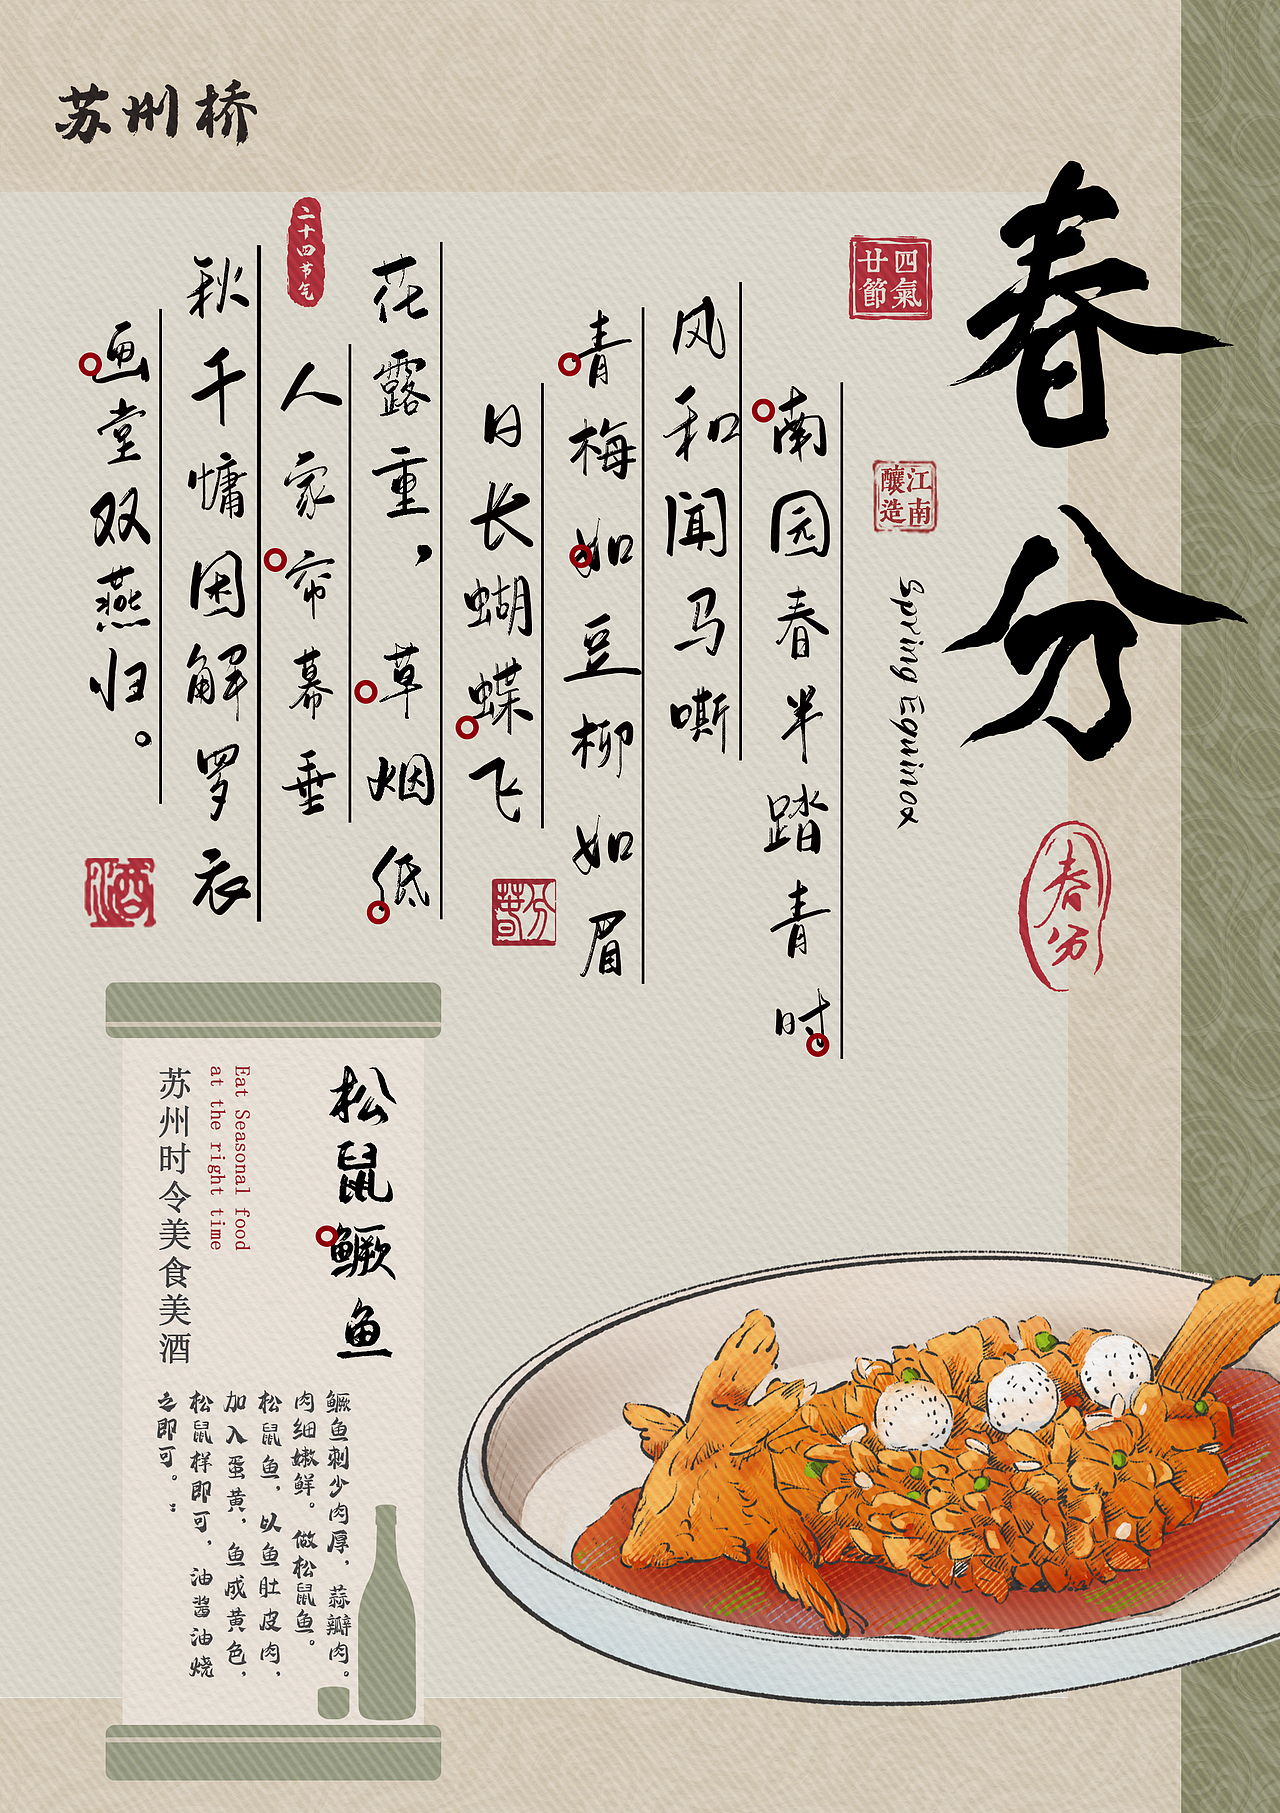 苏州桥
春分
四氣廿節
江南釀造
Spring Equinox
春分
南园春半踏青时
风和闻马嘶
青梅如豆柳如眉
日长蝴蝶飞
春分
花露重，草烟低
人家帘幕垂
二十四节气
秋千慵困解罗衣
画堂双燕归。
酒
松鼠鳜鱼
Eat Seasonal food
at the right time
苏州时令美食美酒
鳜鱼刺少肉厚，蒜瓣肉。
肉细嫩鲜。做松鼠鱼。
松鼠鱼，以鱼肚皮肉，
加入蛋黄，鱼成黄色，
松鼠样即可，油酱油烧
之即可。：